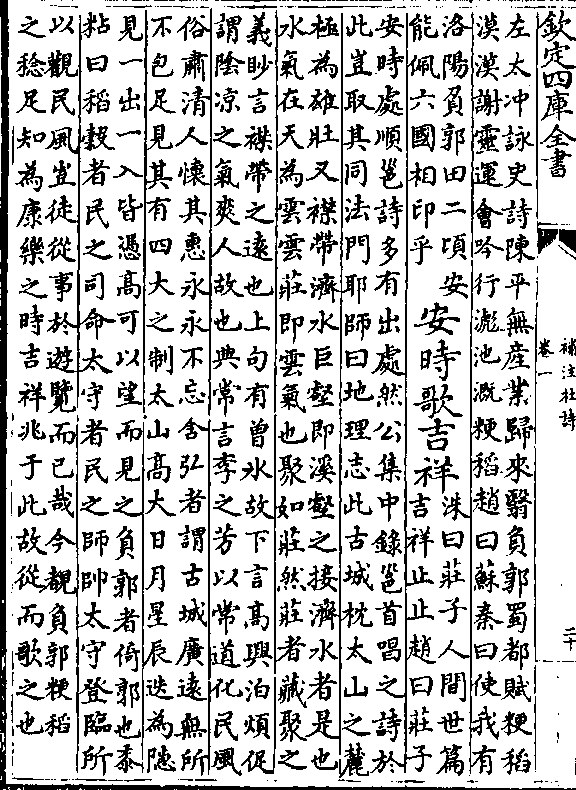 欽定四庫全書
補注杜詩
卷一
二十
左太冲詠史詩陳平無産業歸來翳負郭蜀都賦粳稻
漠漠謝靈運會吟行滮池溉粳稻趙曰蘇秦曰使我有
洛陽負郭田二頃安
能佩六國相印乎
安時歌吉祥
洙曰莊子人間世篇
吉祥止止趙曰莊子
安時處順邕詩多有出處然公集中錄邕首唱之詩於
此豈取其同法門耶師曰地理志此古城枕太山之麓
極為雄壯又襟帶濟水巨壑即溪壑之接濟水者是也
水氣在天為雲雲莊即雲氣也聚如莊然莊者藏聚之
義眇言襟帶之遠也上句有曾氷故下言高興泊煩促
謂陰凉之氣爽人故也典常言李之芳以常道化民風
俗肅清人懷其惠永永不忘含弘者謂古城廣遠無所
不包足見其有四大之制太山高大日月星辰迭為隠
見一出一入皆憑高可以望而見之負郭者倚郭也黍
粘曰稻穀者民之司命太守者民之師帥太守登臨所
以觀民風豈徒從事於遊覽而已哉今覩負郭粳稻
之稔足知為康樂之時吉祥兆于此故從而歌之也